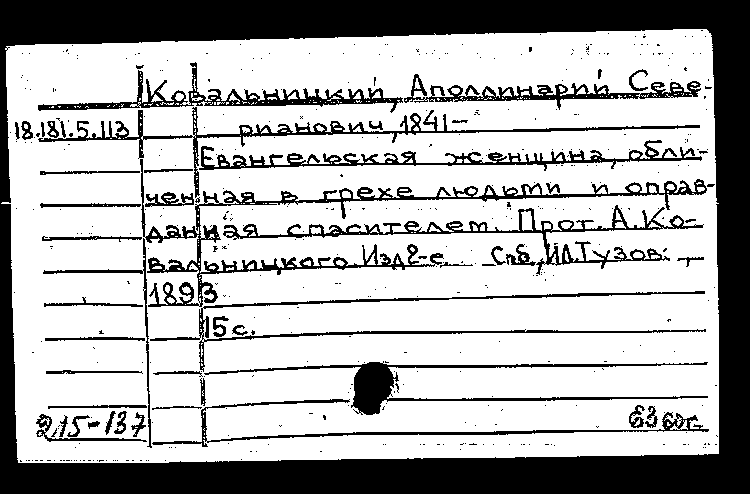 Ковальницкий, Аполлинарий Севе-
18.181.5.113 рианович, 1841-
Евангельская женщина, обли-
ченная в грехе людьми и оправ-
данная спасителем. Прот. А. Ко-
вальницкого. Изд 2-е. Спб, И.Л. Тузов,
1893
15 с.
215-137